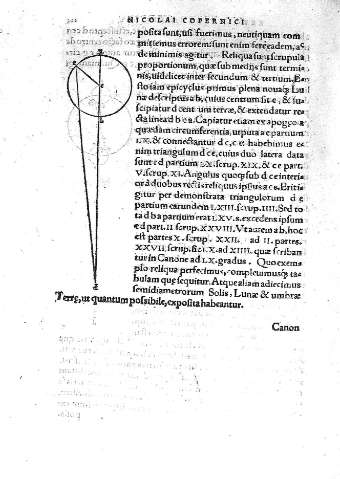 NICOLAI COPERNICI
posita sunt, usi fuerimus, neutiquam com
mittemus errorem: sunt enim fere eadem, ac
de minimis agitur. Reliqua sunt scrupula
proportionum, quæ sub medijs sunt termi
nis, uidelicet inter secundum & tertium. E-
sto iam epicyclus primus plena nouaq; Lu
na descriptus a b, cuius centrum sit c, & su
scipiatur d centrum terræ, & extendatur re
cta linea d b c a. Capiatur etiam ex apogeo a
quædam circumferentia, utputa a e partium
LX. & connectantur d e, c e habebimus e-
nim triangulum d c e, cuius duo latera data
sunt c d partium LX. scrup. XIX. & c e part.
V. scrup. XI. Angulus quoq; sub d c e interi
or à duobus rectis reliquus ipsius a c e. Erit i-
gitur per demonstrata triangulorum d e
partium earundem LXIII. scrup. IIII. Sed to
ta d b a partium erat LXV. s. excedens ipsum
e d part. II scrup. XXVIII. Vt autem a b, hoc
est partes X. scrup. XXII. ad II. partes.
XXVII scrup. sic LX. ad XIIII. quæ scriban
tur in Canone ad LX. gradus. Quo exem
plo reliqua perfecimus, compleuimusq; ta
bulam quæ sequitur. Atque aliam adiecimus
semidiametrorum Solis, Lunæ & umbræ
Terræ, ut quantum possibile, exposita habeantur.
Canon